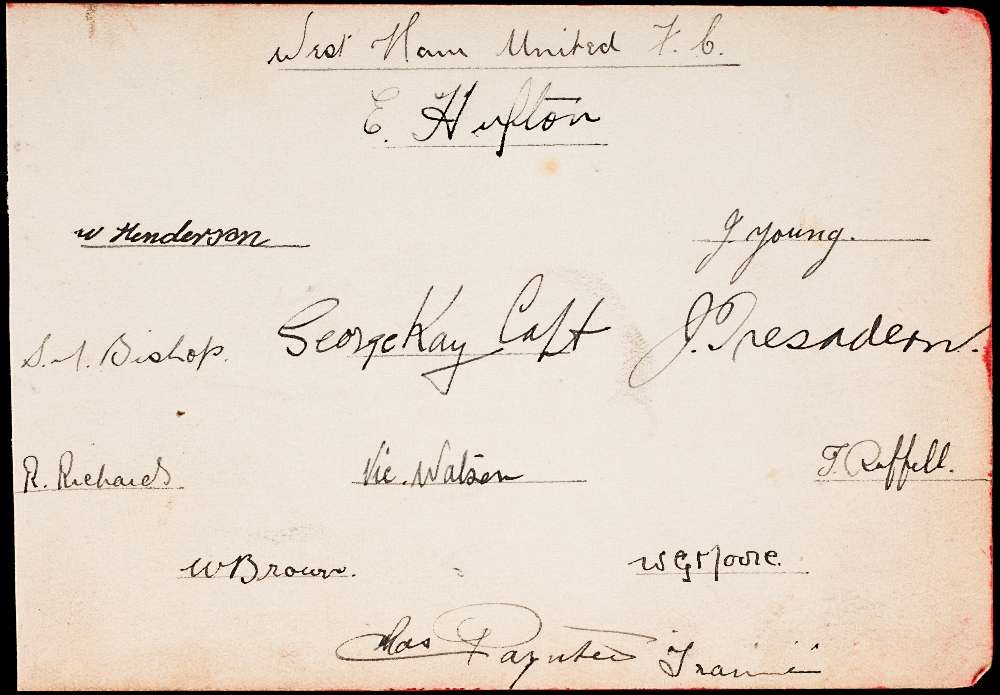 West Ham United F. C.
E. Hufton
W Henderson J Young.
S. A. Bishop. George Kay Capt J. Tresadern.
R. Richards Vic. Watson J. Ruffell.
W Brown. W G Moore.
Chas Paynter Trainer